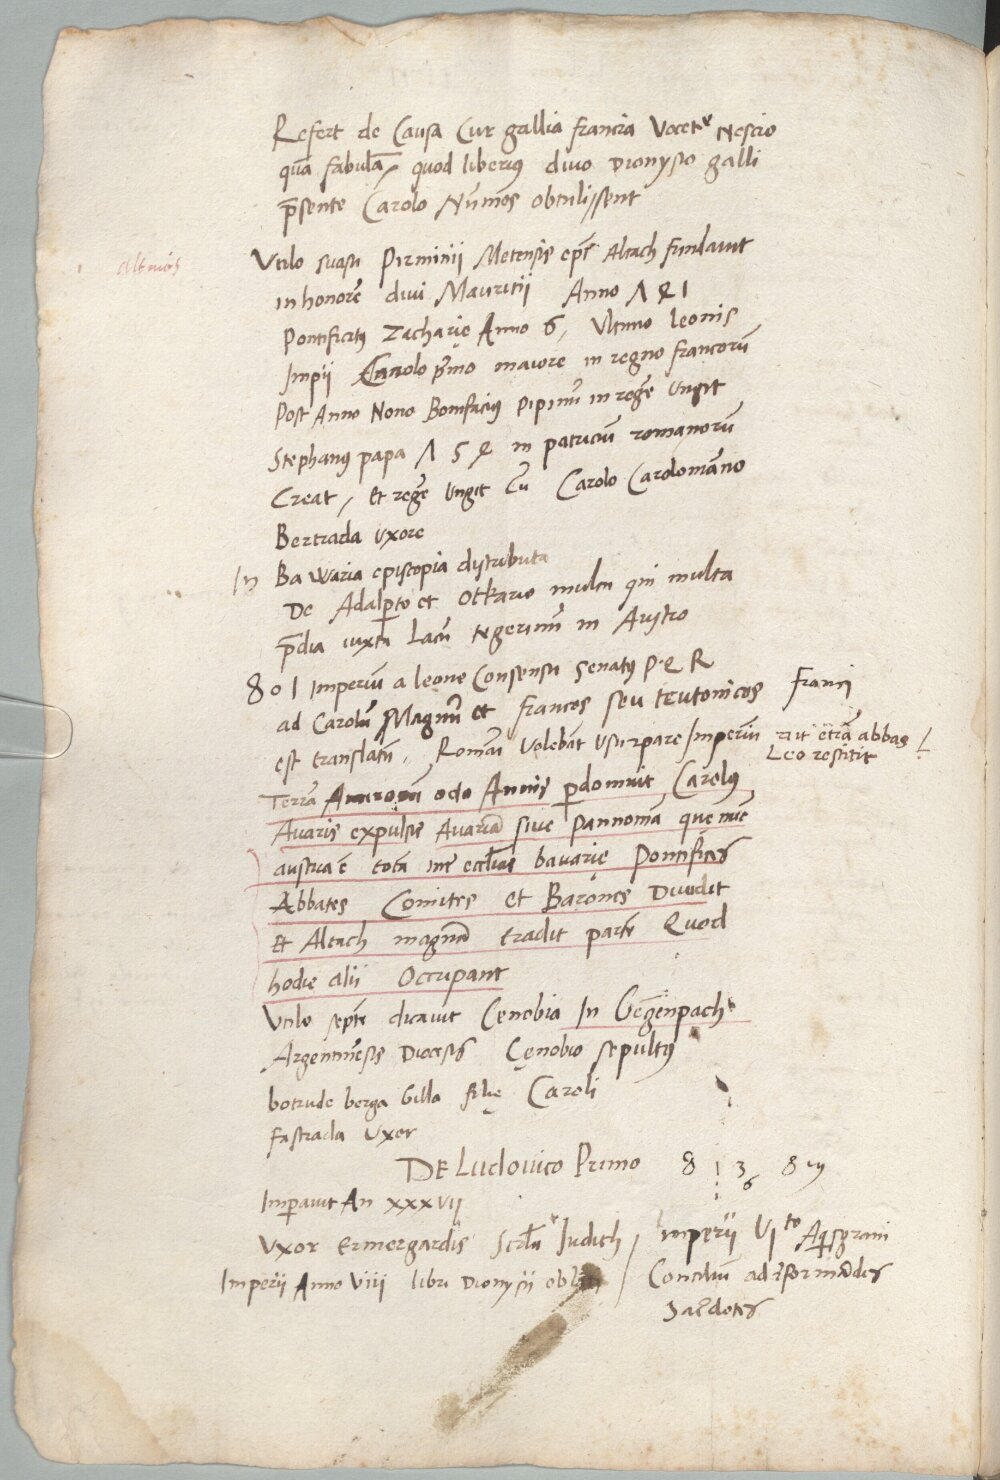 Refert de Causa Cur gallia francia Vocet Nescio
quā fabulā, quod liberius divo Dionysio galli
p̄sente Carolo Nummos obtulissent
Utilo suasu Pirminii Metensis epī Altach fundavit
in honorē divi Mauritii Anno Λ Q I
Pontificatus Zacharię Anno 6, Ultimo leonis
Impii Carolo p̄mo maiore in regno francorū
Post Anno Nono Bonifacius Pipinū in regē Ungit
Stephanus papa Λ 5 Q in patriciū romanorū
Creat, Et regē Ungit cū Carolo Carolomanno
Bertrada Uxore
In Bawaria episcopia distributa
De Adalp̄to et Otkario multa qui multa
p̄dia iuxta Lacū tegerinū in Austro
801 Imperiū a leone Consensu Senatus P Q R
ad Carolū Magnū et francos seu teutonicos franci
est translatū, Romani Volebāt Usurpare Imperiū abbas
Leo restitit
Terrā octo Annis p̄domuit Carolus
Avaris expulsis Avariā sive Pannoniā que nūc
austria ē totā int̄ ecclias bavarię Pontifices
Abbates Comites et Barones Dividit
Et Altach magnā tradit partē Quod
hodie alii Occupant
Utilo septē dicavit Cenobia In Gegenpach
Argentinēsis Diocesis Cęnobio sepultus
botrude berga Gilla filię Caroli
fastrada Uxor
DE Ludovico Primo 8 1 3 8 
6
Imp̄avit An XXXVII
Uxor Ermergardis Judith, Imperii VI to Aquisgrani
Imperii Anno VIII libri Dionysii oblati / Conciliū ad reformādos
Sac̄dotes